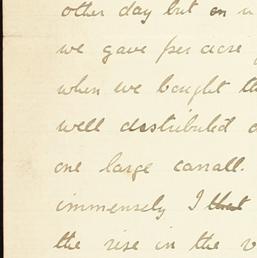 other day but on
we gave per acre
when we bought th
well distributed
one large carrall.
immensely I that
the rise in the